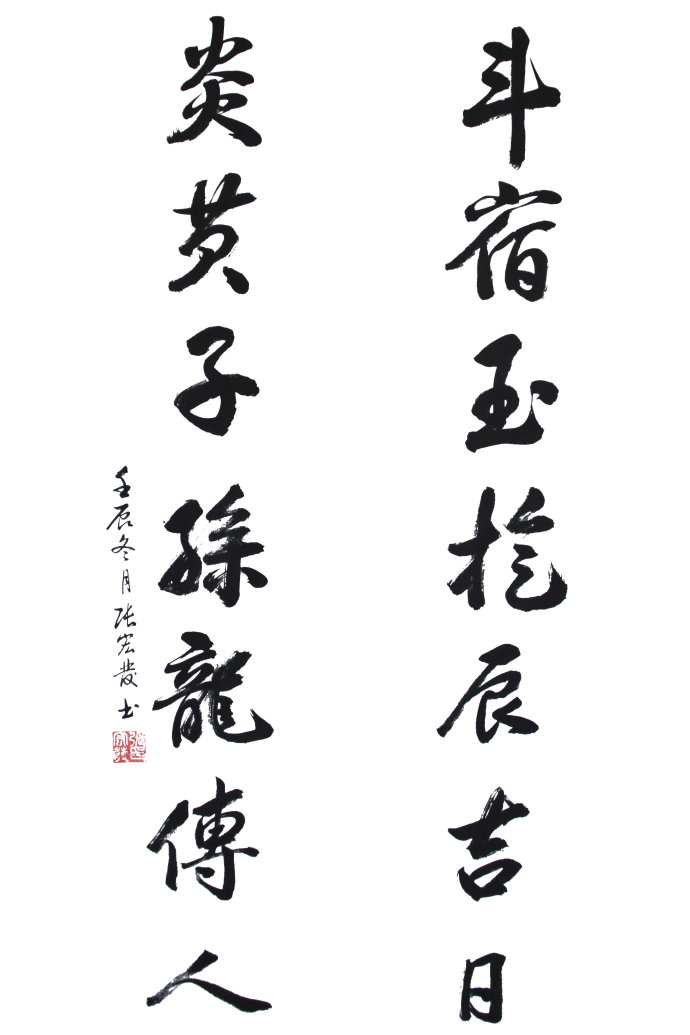 斗宿玉於辰吉日
炎黄子孫龍傳人
壬辰冬月张宏發书